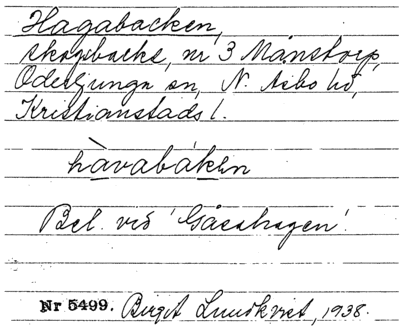 Hagabacken,
skogsbacke, nr 3 Månstorp,
Oderljunga sn, N. Åsbo hd,
Kristianstads l.
hàvabákən
Bel. ved 'Gåsahagen'.
Nr 5499. Birgit Lundkvist, 1938.